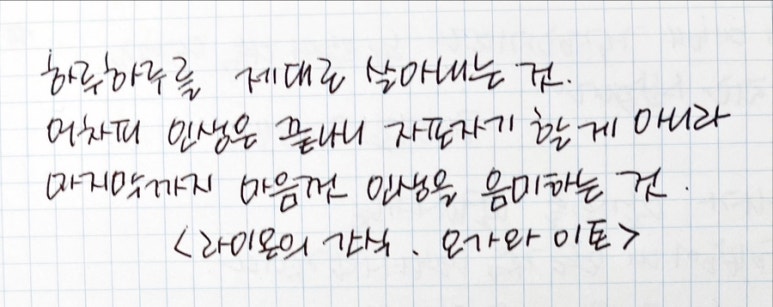 하루하루를 제대로 살아내는 것.
어차피 인생은 끝나니 자포자기 할 게 아니라
마지막까지 마음껏 인생을 음미하는 것.
<라이온의 간식. 오가와 이토>